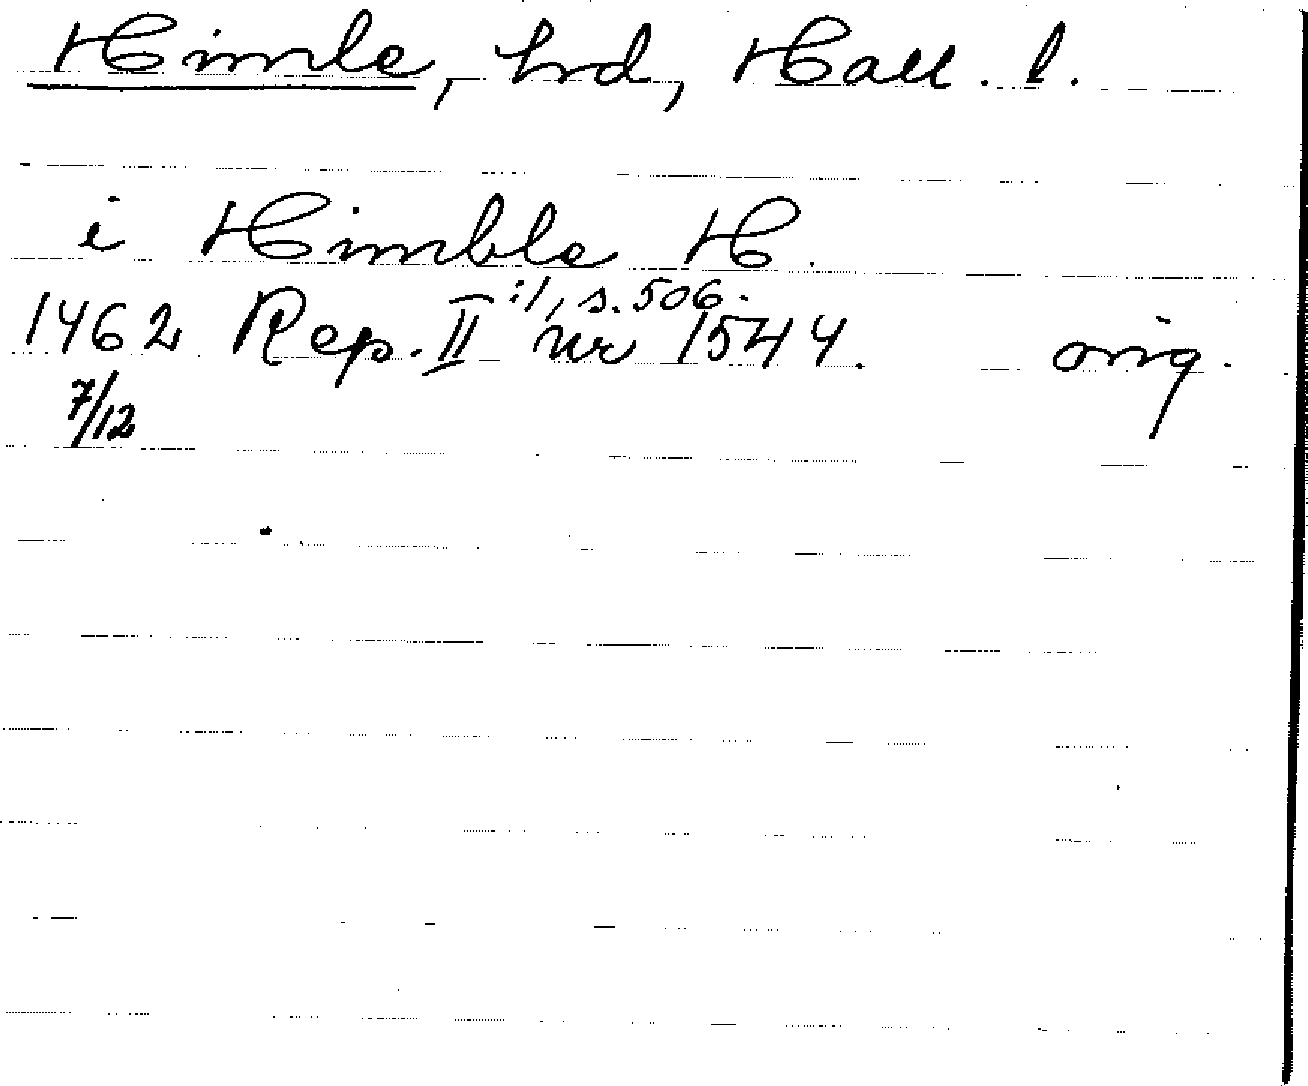 Himle, hd, Hall. l.
i Himble H.
1462 Rep. II:1, s. 506. nr 1544. orig.
7/12